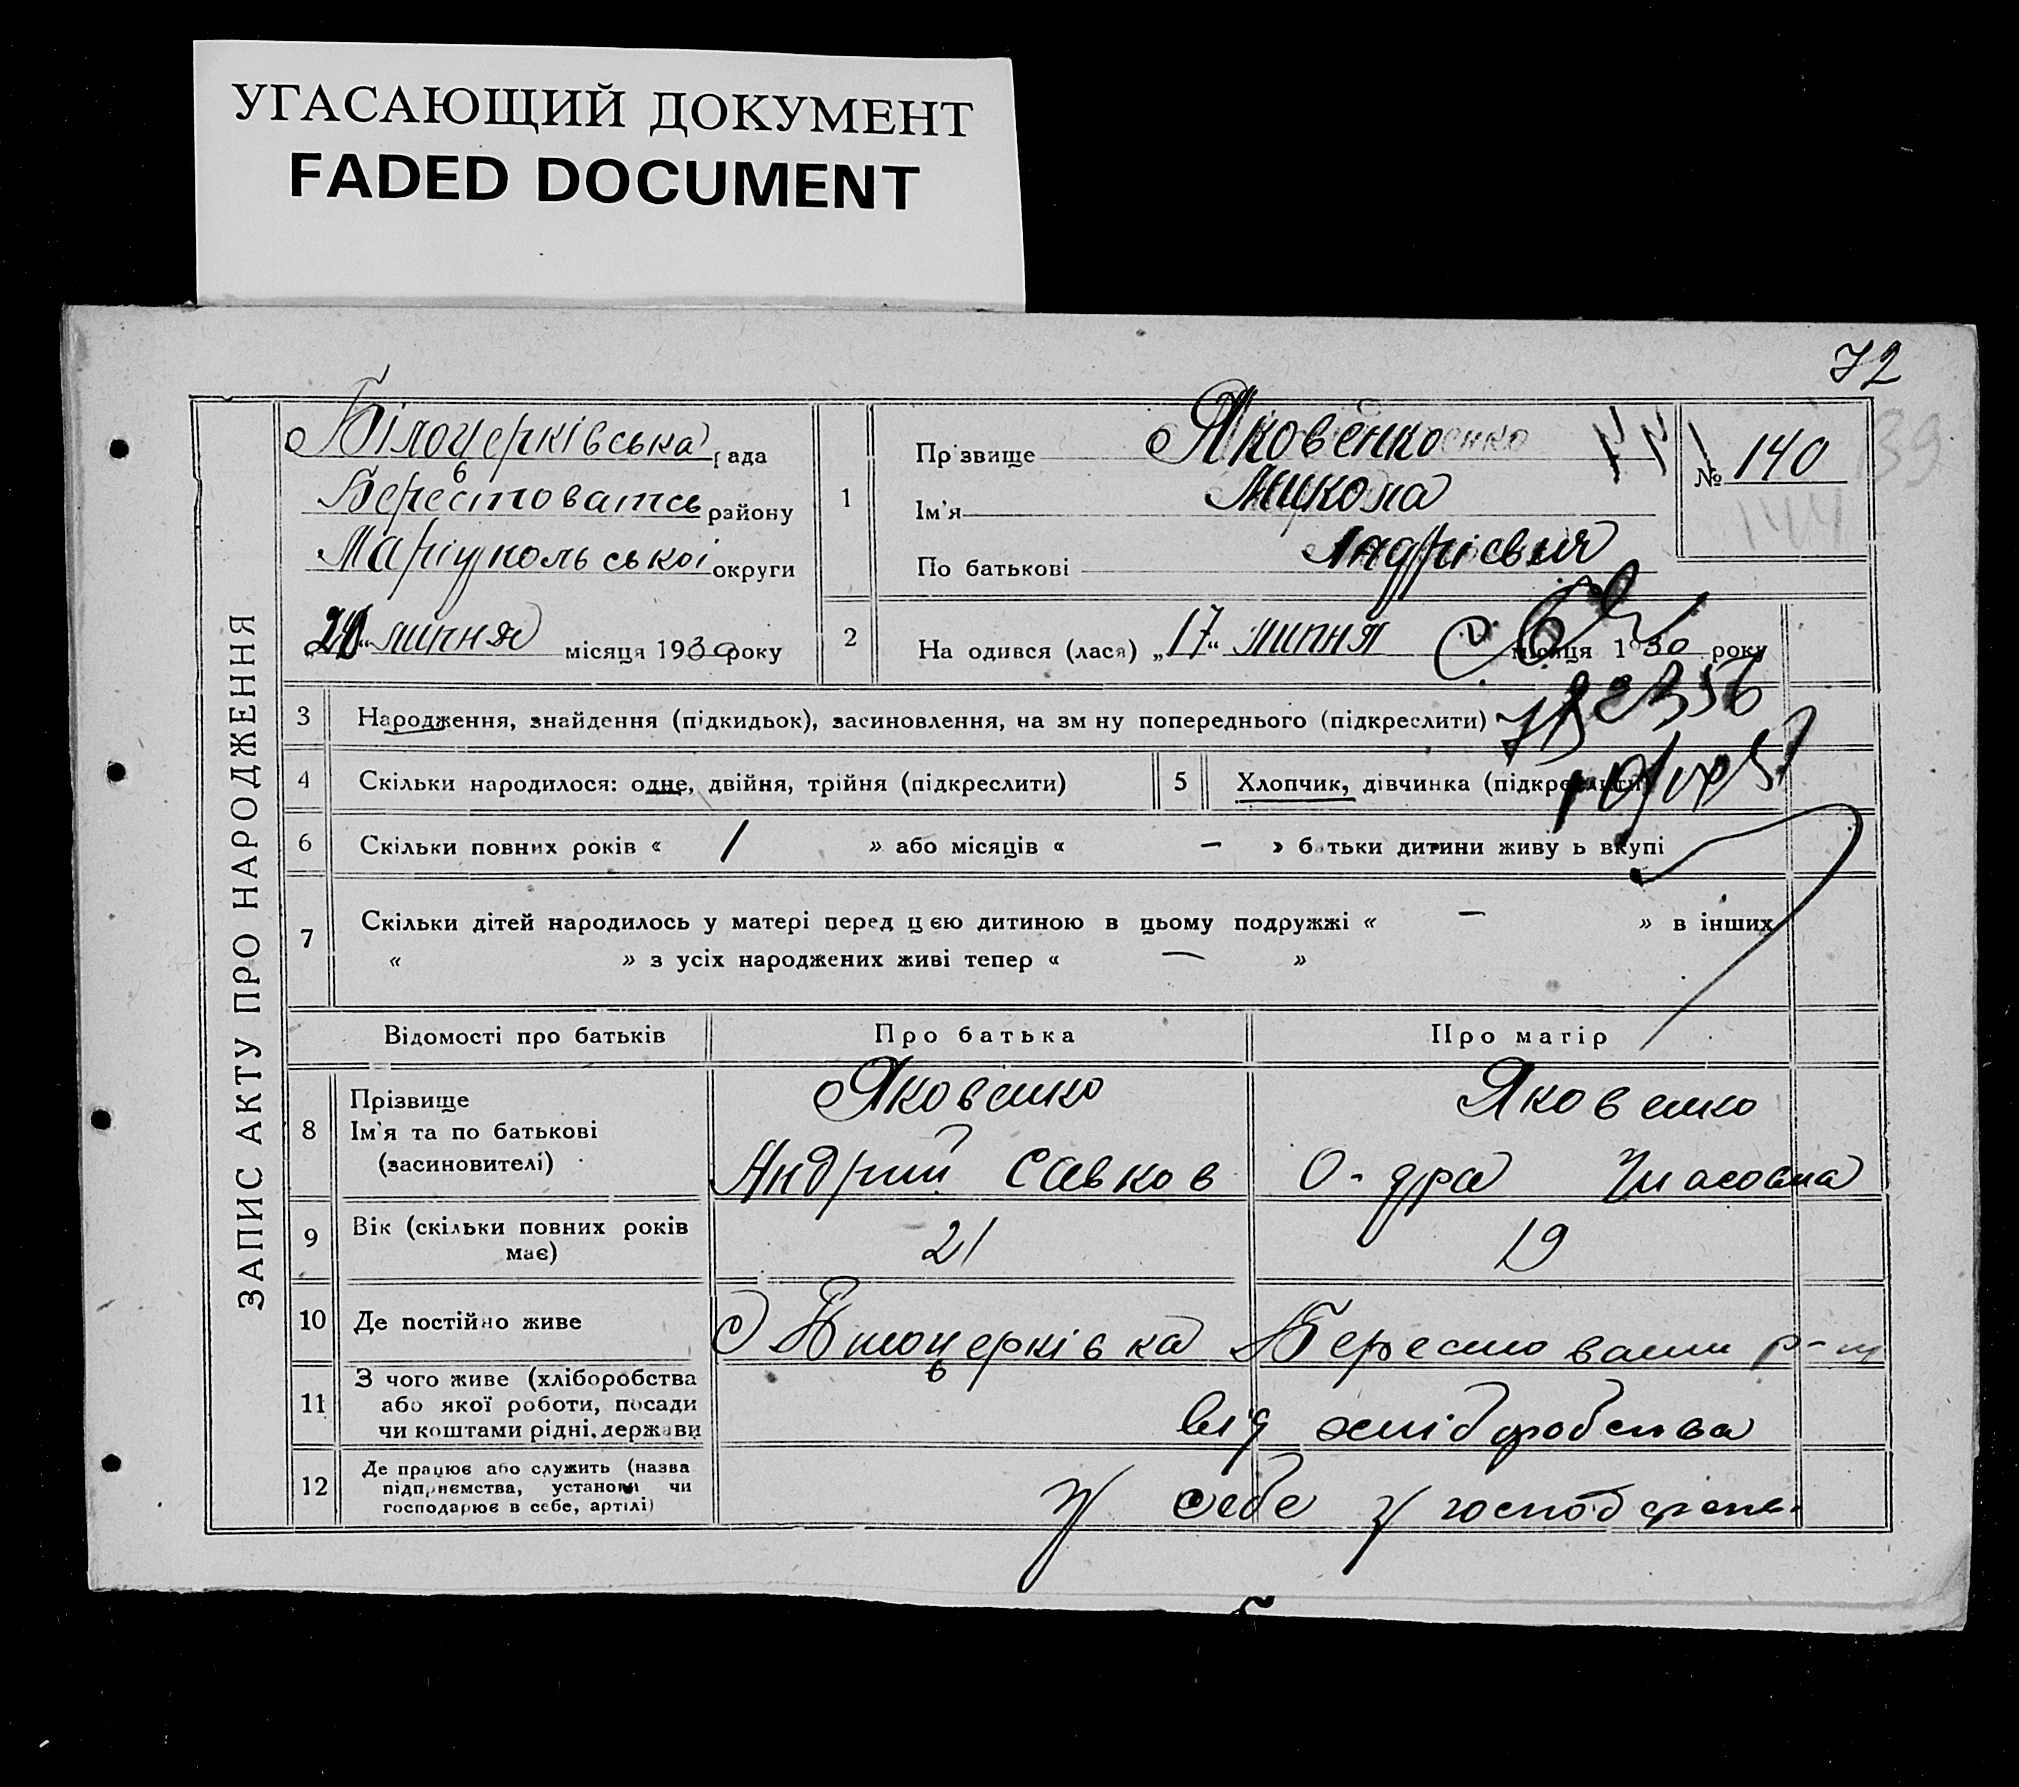 УГАСАЮЩИЙ ДОКУМЕНТ
FADED DOCUMENT
72
ЗАПИС АКТУ ПРО НАРОДЖЕННЯ
Білоцерківська рада
Берестоватсь району
Маріупольської округи
липня місяця 1930 року
1
Прізвище Яковенко
Ім'я Микола
По батькові
№ 140
139
144
2
На одився (лася) „17“ липня місяця 1930 року
3 Народження, знайдення (підкидьок), засиновлення, на зм ну попереднього (підкреслити)
4 Скільки народилося: одне, двійня, трійня (підкреслити)
5 Хлопчик, дівчинка (підкреслити)
6 Скільки повних років « 1 » або місяців « – » батьки дитини живу ь вкупі
7 Скільки дітей народилось у матері перед цією дитиною в цьому подружжі « – » в інших
« » з усіх народжених живі тепер « — »
Відомості про батьків Про батька Про матір
8 Прізвище
Ім'я та по батькові
(засиновителі)
Яковенко
Андрий Савков
Яковенко
9 Вік (скільки повних років
має)
21
19
10 Де постійно живе
С Білоцерківка Берестовами р-н
11 З чого живе (хліборобства
або якої роботи, посади
чи коштами рідні, держави
від хліборобства
12 Де працює або служить (назва
підприємства, установи чи
господарює в себе, артілі)
У себе у